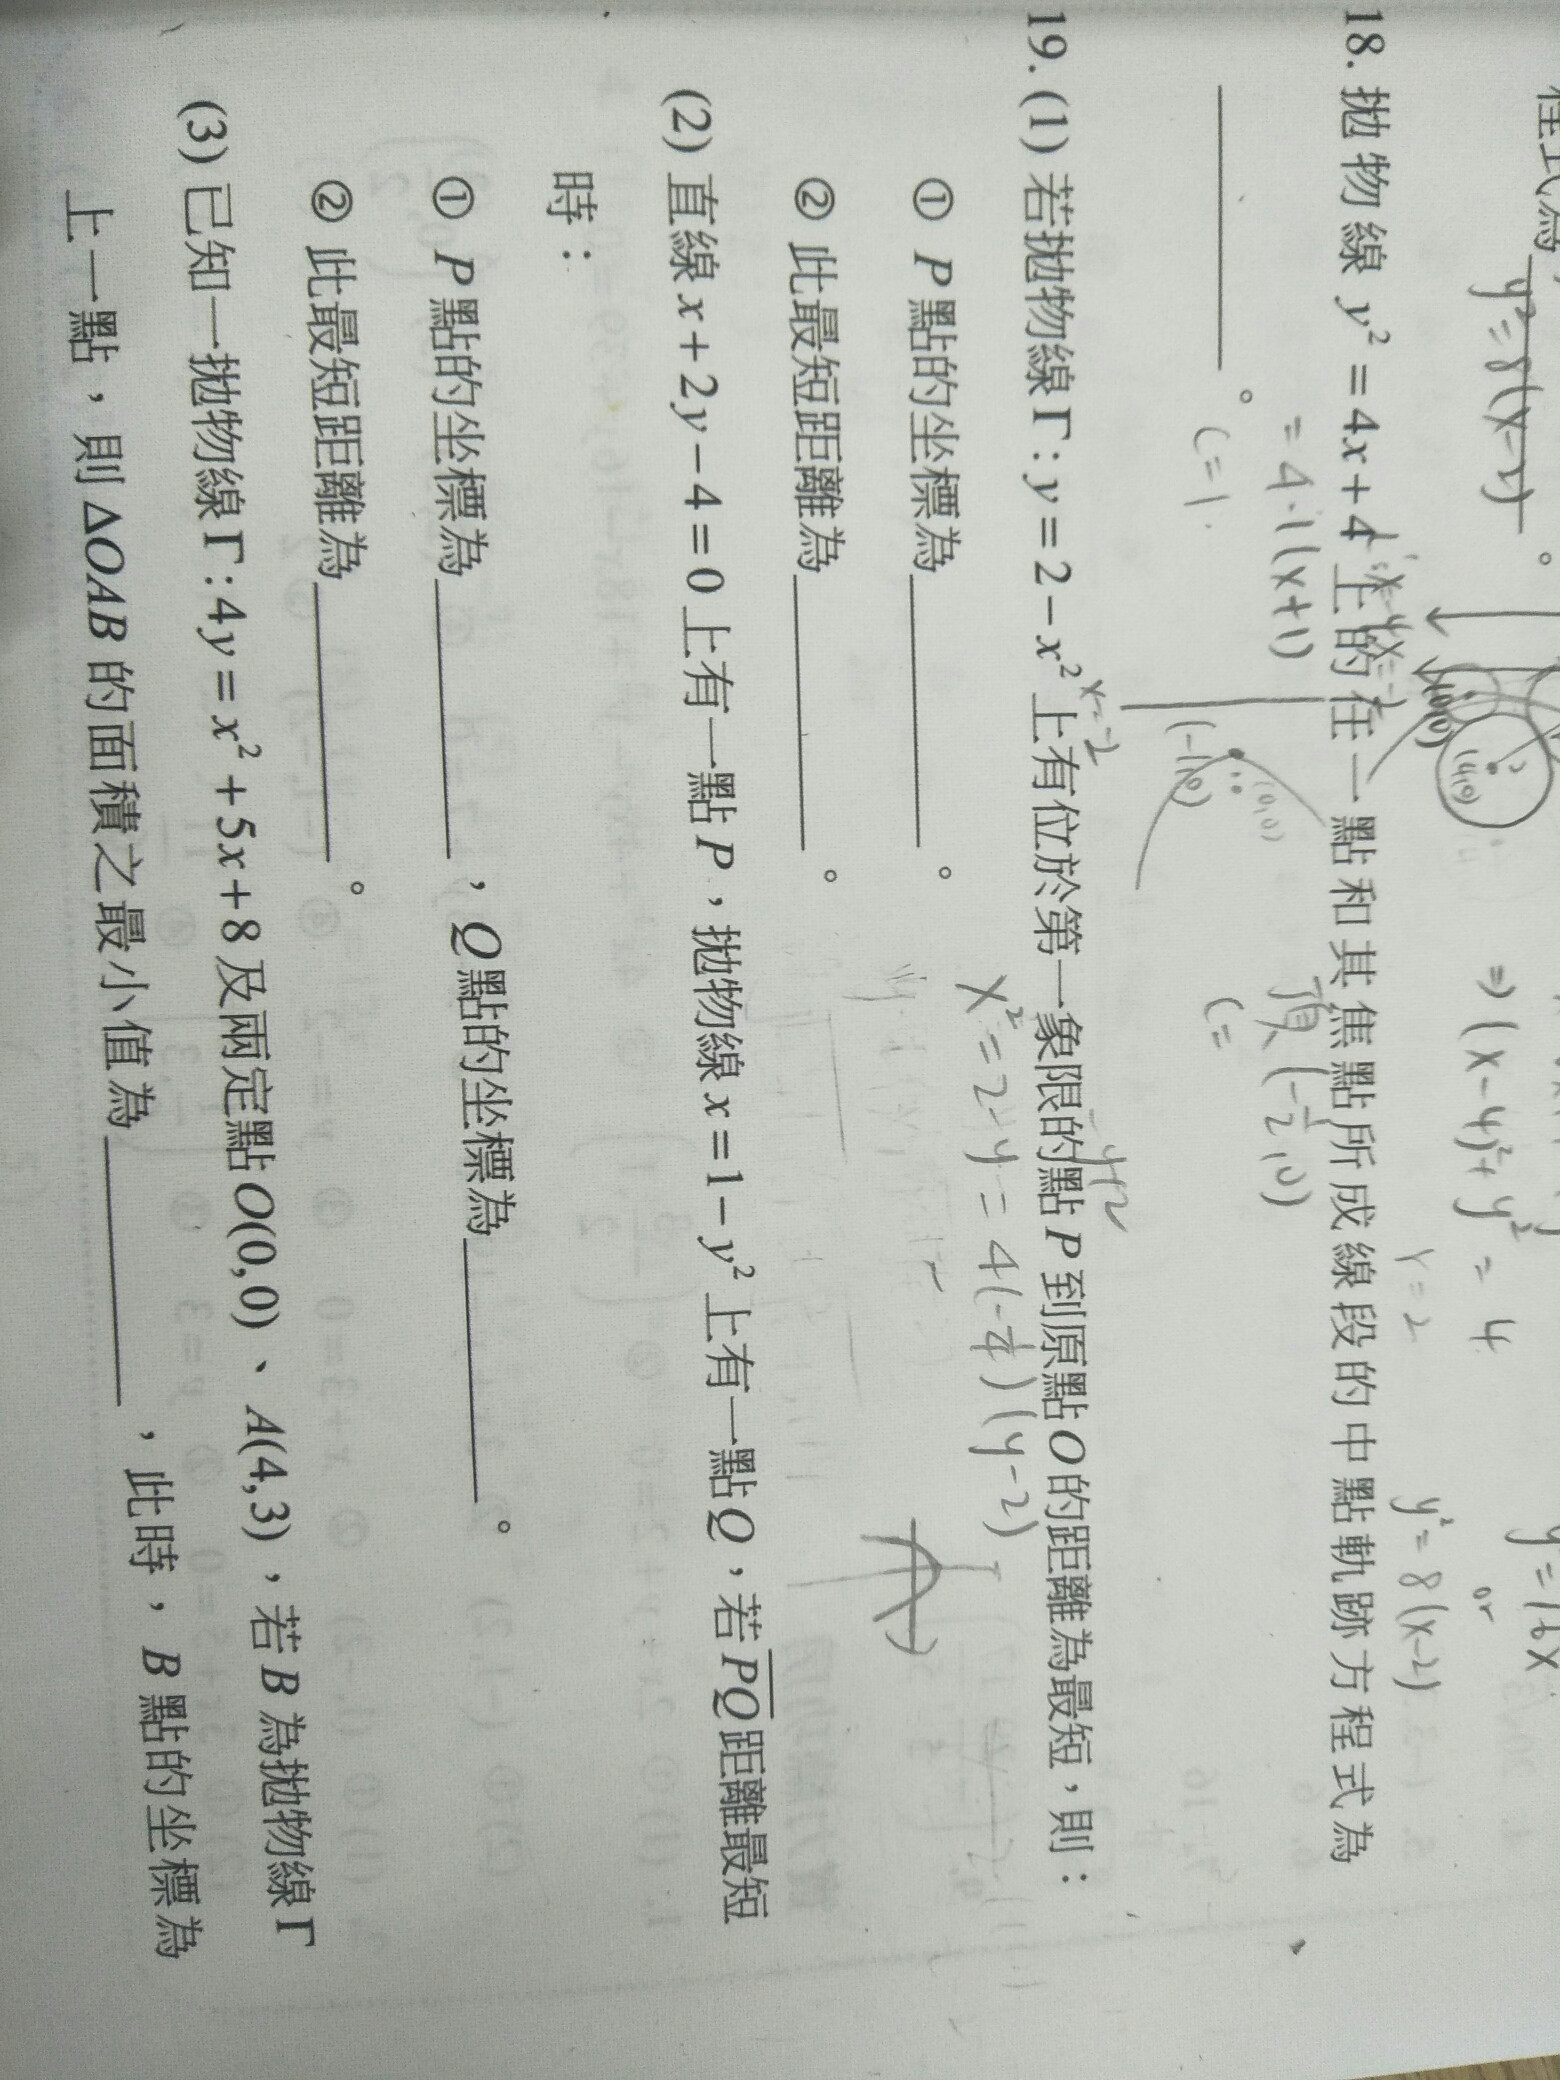 程式為 y²=8(x-2) 。
y=16x
or
⇒(x-4)²+y²=4
y²=8(x-2)
(4,0)
(0,0)
18. 拋物線 y² = 4x + 4 上的任一點和其焦點所成線段的中點軌跡方程式為
＿＿＿＿＿。
=4·1(x+1)
頂(-1/2,0)
c=1
c=
(-1,0)
(0,0)
19. (1) 若拋物線 Γ : y = 2 − x² 上有位於第一象限的點 P 到原點 O 的距離為最短，則：
x²=2-y=4(-1/4)(y-2)
① P 點的坐標為＿＿＿＿＿。
② 此最短距離為＿＿＿＿＿。
(2) 直線 x + 2y − 4 = 0 上有一點 P，拋物線 x = 1 − y² 上有一點 Q，若 PQ 距離最短
時：
① P 點的坐標為＿＿＿＿＿，Q 點的坐標為＿＿＿＿＿。
② 此最短距離為＿＿＿＿＿。
(3) 已知一拋物線 Γ : 4y = x² + 5x + 8 及兩定點 O(0,0)、A(4,3)，若 B 為拋物線 Γ
上一點，則 △OAB 的面積之最小值為＿＿＿＿＿，此時，B 點的坐標為